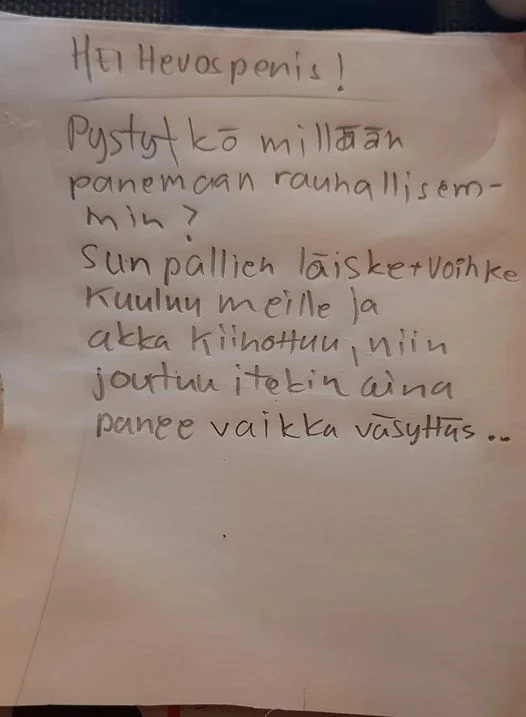 HEI Hevospenis!
Pystytkö millään
panemaan rauhallisem-
min?
Sun pallien läiske+voihke
kuuluu meille ja
akka kiihottuu, niin
joutuu itekin aina
panee vaikka väsyttäs..